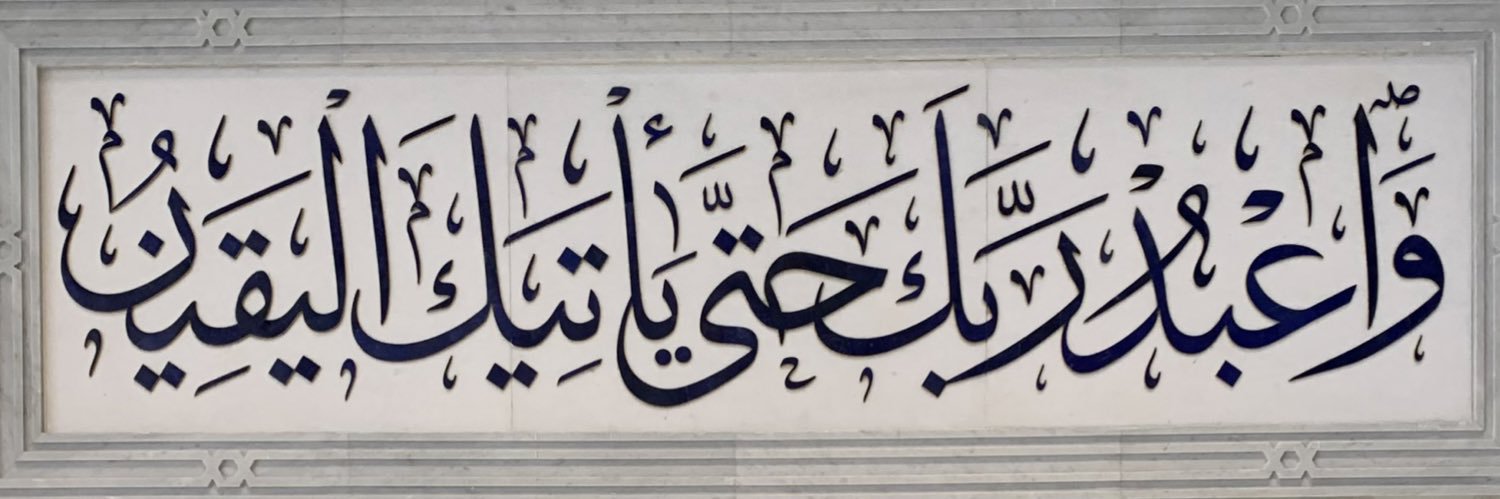 وَٱعْبُدْ رَبَّكَ حَتَّىٰ يَأْتِيَكَ الْيَقِينُ